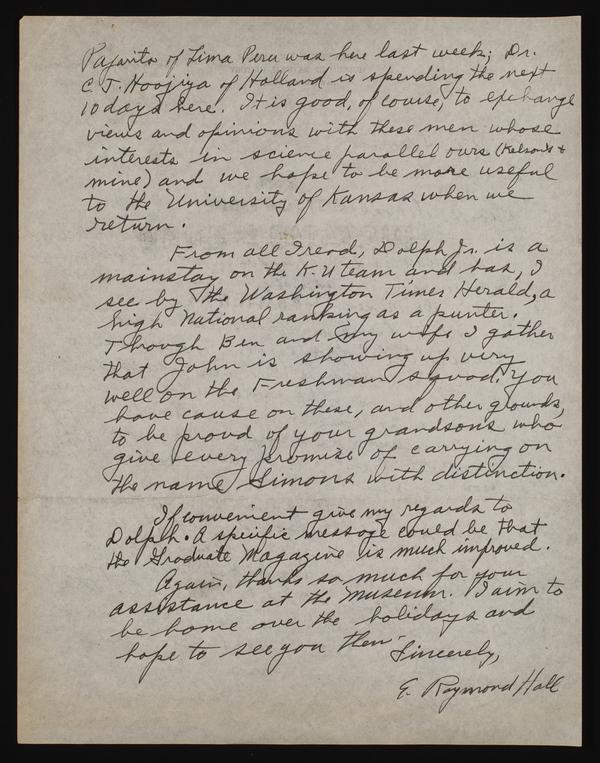 Pajarito of Lima Peru was here last week; Dr.
C. J. Hoojiya of Holland is spending the next
10 days here. It is good, of course, to exchange
views and opinions with these men whose
interests in science parallel ours (Kelson's &
mine) and we hope to be more useful
to the University of Kansas when we
return.
From all I read, Dolph Jr. is a
mainstay on the K.U team and has, I
see by the Washington Times Herald, a
high National ranking as a punter.
Through Ben and my wife I gather
that John is showing up very
well on the Freshman squad. You
have cause on these, and other grounds,
to be proud of your grandsons who
give every promise of carrying on
the name Simons with distinction.
If convenient give my regards to
Dolph. A specific message could be that
the Graduate Magazine is much improved.
Again, thanks so much for your
assistance at the Museum. I aim to
be home over the holidays and
hope to see you then.
Sincerely,
E. Raymond Hall